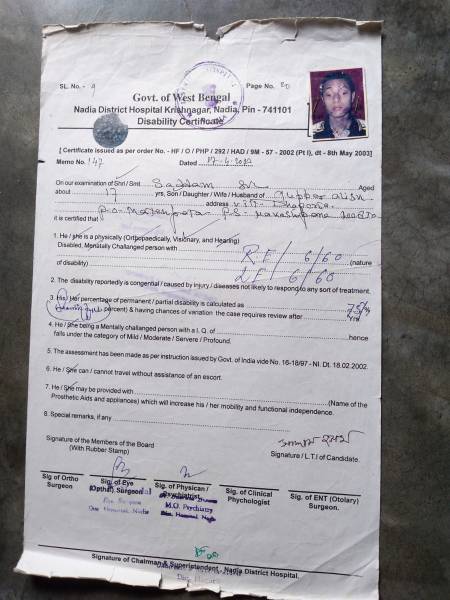 SL. No. - 9
Page No. 20
Govt. of West Bengal
Nadia District Hospital Krishnagar, Nadia, Pin - 741101
Disability Certificate
[ Certificate issued as per order No. - HF / O / PHP / 292 / HAD / 9M - 57 - 2002 (Pt I), dt - 8th May 2003]
Memo No. 147 Dated
On our examination of Shri / Smt. Saddam Aged
about 17 yrs, Son / Daughter / Wife / Husband of
address vill-
P.O- P.S-
it is certified that
1. He / she is a physically (Orthopaedically, Visionary, and Hearing)
Disabled, Mentally Challanged person with RE / 6/60 (nature
of disability) LE / 6/60
2. The disability reportedly is congential / caused by injury / diseases not likely to respond to any sort of treatment.
3. His / Her percentage of permanent / partial disability is calculated as 75%
percent) & having chances of variation the case requires review after
4. He / she being a Mentally challanged person with a I. Q. of hence
falls under the category of Mild / Moderate / Servere / Profound.
5. The assessment has been made as per instruction issued by Govt. of India vide No. 16-18/97 - NI. Dt. 18.02.2002.
6. He / She can / cannot travel without assistance of an escort.
7. He / She may be provided with (Name of the
Prosthetic Aids and appliances) which will increase his / her mobility and functional independence.
8. Special remarks, if any
Signature of the Members of the Board
(With Rubber Stamp)
Signature / L.T.I of Candidate.
Sig. of Ortho
Surgeon
Sig. of Eye
(Opthal) Surgeon
Sig. of Physican /
Psychiatrist
M.O. Psychiatry
Sig. of Clinical
Phychologist
Sig. of ENT (Otolary)
Surgeon.
Signature of Chairman & Superintendent - Nadia District Hospital.